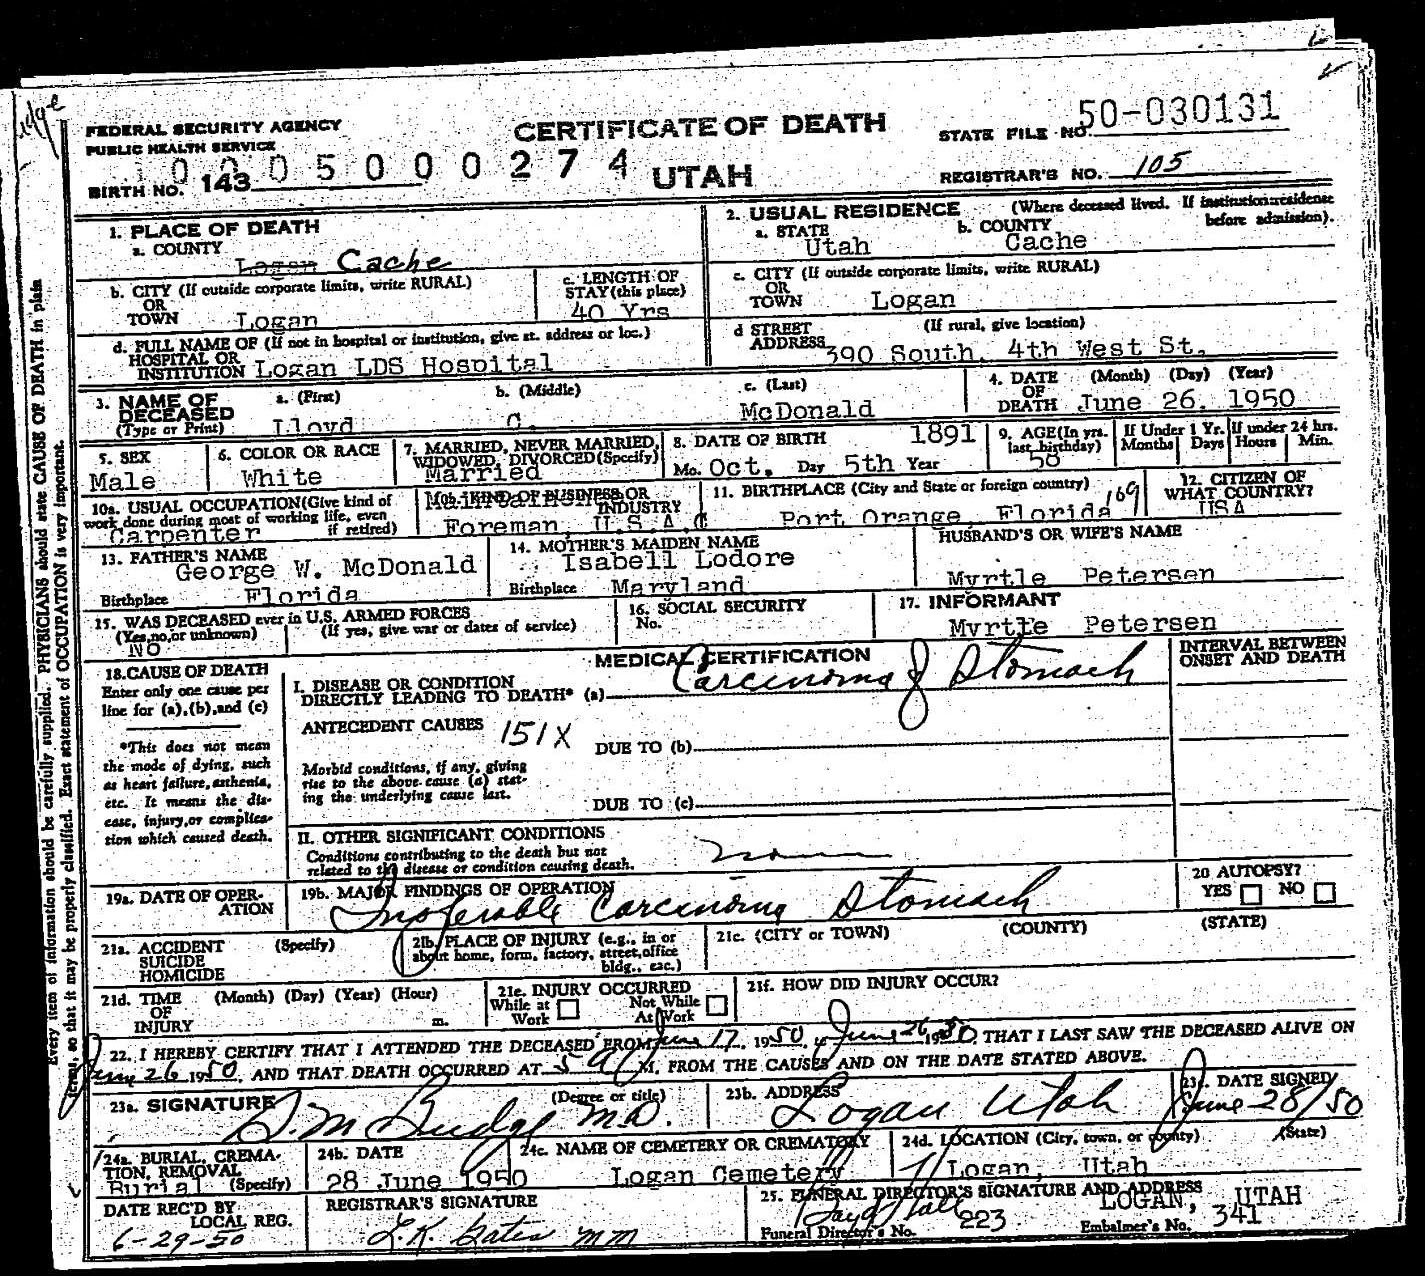 FEDERAL SECURITY AGENCY
PUBLIC HEALTH SERVICE
CERTIFICATE OF DEATH
STATE FILE NO. 50-030131
0005000274
BIRTH NO. 143
UTAH
REGISTRAR'S NO. 105
1. PLACE OF DEATH
a. COUNTY
Logan Cache
2. USUAL RESIDENCE (Where deceased lived. If institution: residence before admission).
a. STATE
Utah
b. COUNTY
Cache
b. CITY (If outside corporate limits, write RURAL)
OR
TOWN Logan
c. LENGTH OF
STAY (this place)
40 Yrs
c. CITY (If outside corporate limits, write RURAL)
OR
TOWN Logan
d. FULL NAME OF (If not in hospital or institution, give st. address or loc.)
HOSPITAL OR
INSTITUTION Logan LDS Hospital
d STREET (If rural, give location)
ADDRESS 390 South, 4th West St.
3. NAME OF
DECEASED
(Type or Print)
a. (First)
Lloyd
b. (Middle)
C.
c. (Last)
McDonald
4. DATE (Month) (Day) (Year)
OF
DEATH June 26, 1950
5. SEX
Male
6. COLOR OR RACE
White
7. MARRIED, NEVER MARRIED,
WIDOWED, DIVORCED (Specify)
Married
8. DATE OF BIRTH 1891
Mo. Oct. Day 5th Year
9. AGE (In yrs.
last birthday)
58
If Under 1 Yr.
Months Days
If under 24 hrs.
Hours Min.
10a. USUAL OCCUPATION (Give kind of
work done during most of working life, even
if retired)
Carpenter
10b. KIND OF BUSINESS OR
INDUSTRY
Maintainence
Foreman, U.S.A.C
11. BIRTHPLACE (City and State or foreign country)
Port Orange, Florida 109
12. CITIZEN OF
WHAT COUNTRY?
USA
13. FATHER'S NAME
George W. McDonald
Birthplace Florida
14. MOTHER'S MAIDEN NAME
Isabell Lodore
Birthplace Maryland
HUSBAND'S OR WIFE'S NAME
Myrtle Petersen
15. WAS DECEASED ever in U.S. ARMED FORCES
(Yes,no,or unknown) (If yes, give war or dates of service)
No
16. SOCIAL SECURITY
No.
17. INFORMANT
Myrtle Petersen
18. CAUSE OF DEATH
Enter only one cause per
line for (a),(b),and (c)
*This does not mean
the mode of dying, such
as heart failure, asthenia,
etc. It means the dis-
ease, injury, or complica-
tion which caused death.
MEDICAL CERTIFICATION
INTERVAL BETWEEN
ONSET AND DEATH
I. DISEASE OR CONDITION
DIRECTLY LEADING TO DEATH* (a) Carcinoma of Stomach
ANTECEDENT CAUSES 151X
DUE TO (b)
Morbid conditions, if any, giving
rise to the above cause (a) stat-
ing the underlying cause last.
DUE TO (c)
II. OTHER SIGNIFICANT CONDITIONS
Conditions contributing to the death but not
related to the disease or condition causing death.
19a. DATE OF OPER-
ATION
19b. MAJOR FINDINGS OF OPERATION
Inoperable Carcinoma Stomach
20 AUTOPSY?
YES NO
21a. ACCIDENT (Specify)
SUICIDE
HOMICIDE
21b. PLACE OF INJURY (e.g., in or
about home, farm, factory, street, office
bldg., eac.)
21c. (CITY or TOWN) (COUNTY) (STATE)
21d. TIME (Month) (Day) (Year) (Hour)
OF
INJURY m.
21e. INJURY OCCURRED
While at Work Not While At Work
21f. HOW DID INJURY OCCUR?
22. I HEREBY CERTIFY THAT I ATTENDED THE DECEASED FROM June 17, 1950, to June 26, 1950, THAT I LAST SAW THE DECEASED ALIVE ON
June 26 1950, AND THAT DEATH OCCURRED AT 5 A M, FROM THE CAUSES AND ON THE DATE STATED ABOVE.
23a. SIGNATURE (Degree or title)
Budge M.D.
23b. ADDRESS
Logan Utah
23c. DATE SIGNED
June 28/50
24a. BURIAL, CREMA-
TION, REMOVAL
(Specify)
Burial
24b. DATE
28 June 1950
24c. NAME OF CEMETERY OR CREMATORY
Logan Cemetery
24d. LOCATION (City, town, or county) (State)
Logan, Utah
DATE REC'D BY
LOCAL REG.
6-29-50
REGISTRAR'S SIGNATURE
25. FUNERAL DIRECTOR'S SIGNATURE AND ADDRESS
LOGAN, UTAH
Funeral Director's No. 223
Embalmer's No. 341
Every item of information should be carefully supplied. PHYSICIANS should state CAUSE OF DEATH in plain
terms, so that it may be properly classified. Exact statement of OCCUPATION is very important.